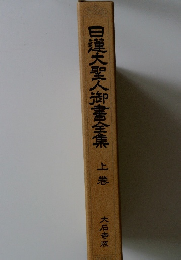 日蓮大聖人御書全集
上巻
大石寺版